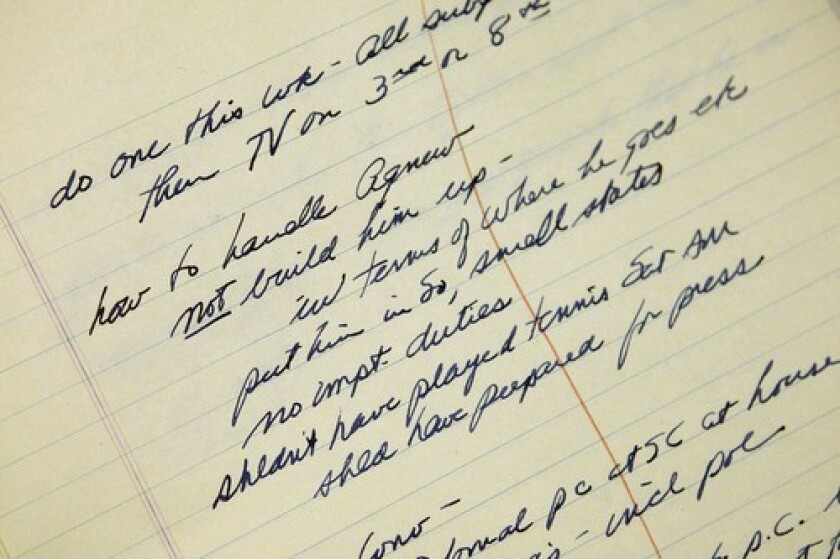 do one this wk - all subj
then TV on 3rd or 8th
how to handle Agnew
not build him up -
in terms of where he goes etc
put him in So, small states
no impt. duties
shldn't have played tennis Sat AM
shld have prepared for press
pc at SC at house
- incl pol
p.c.